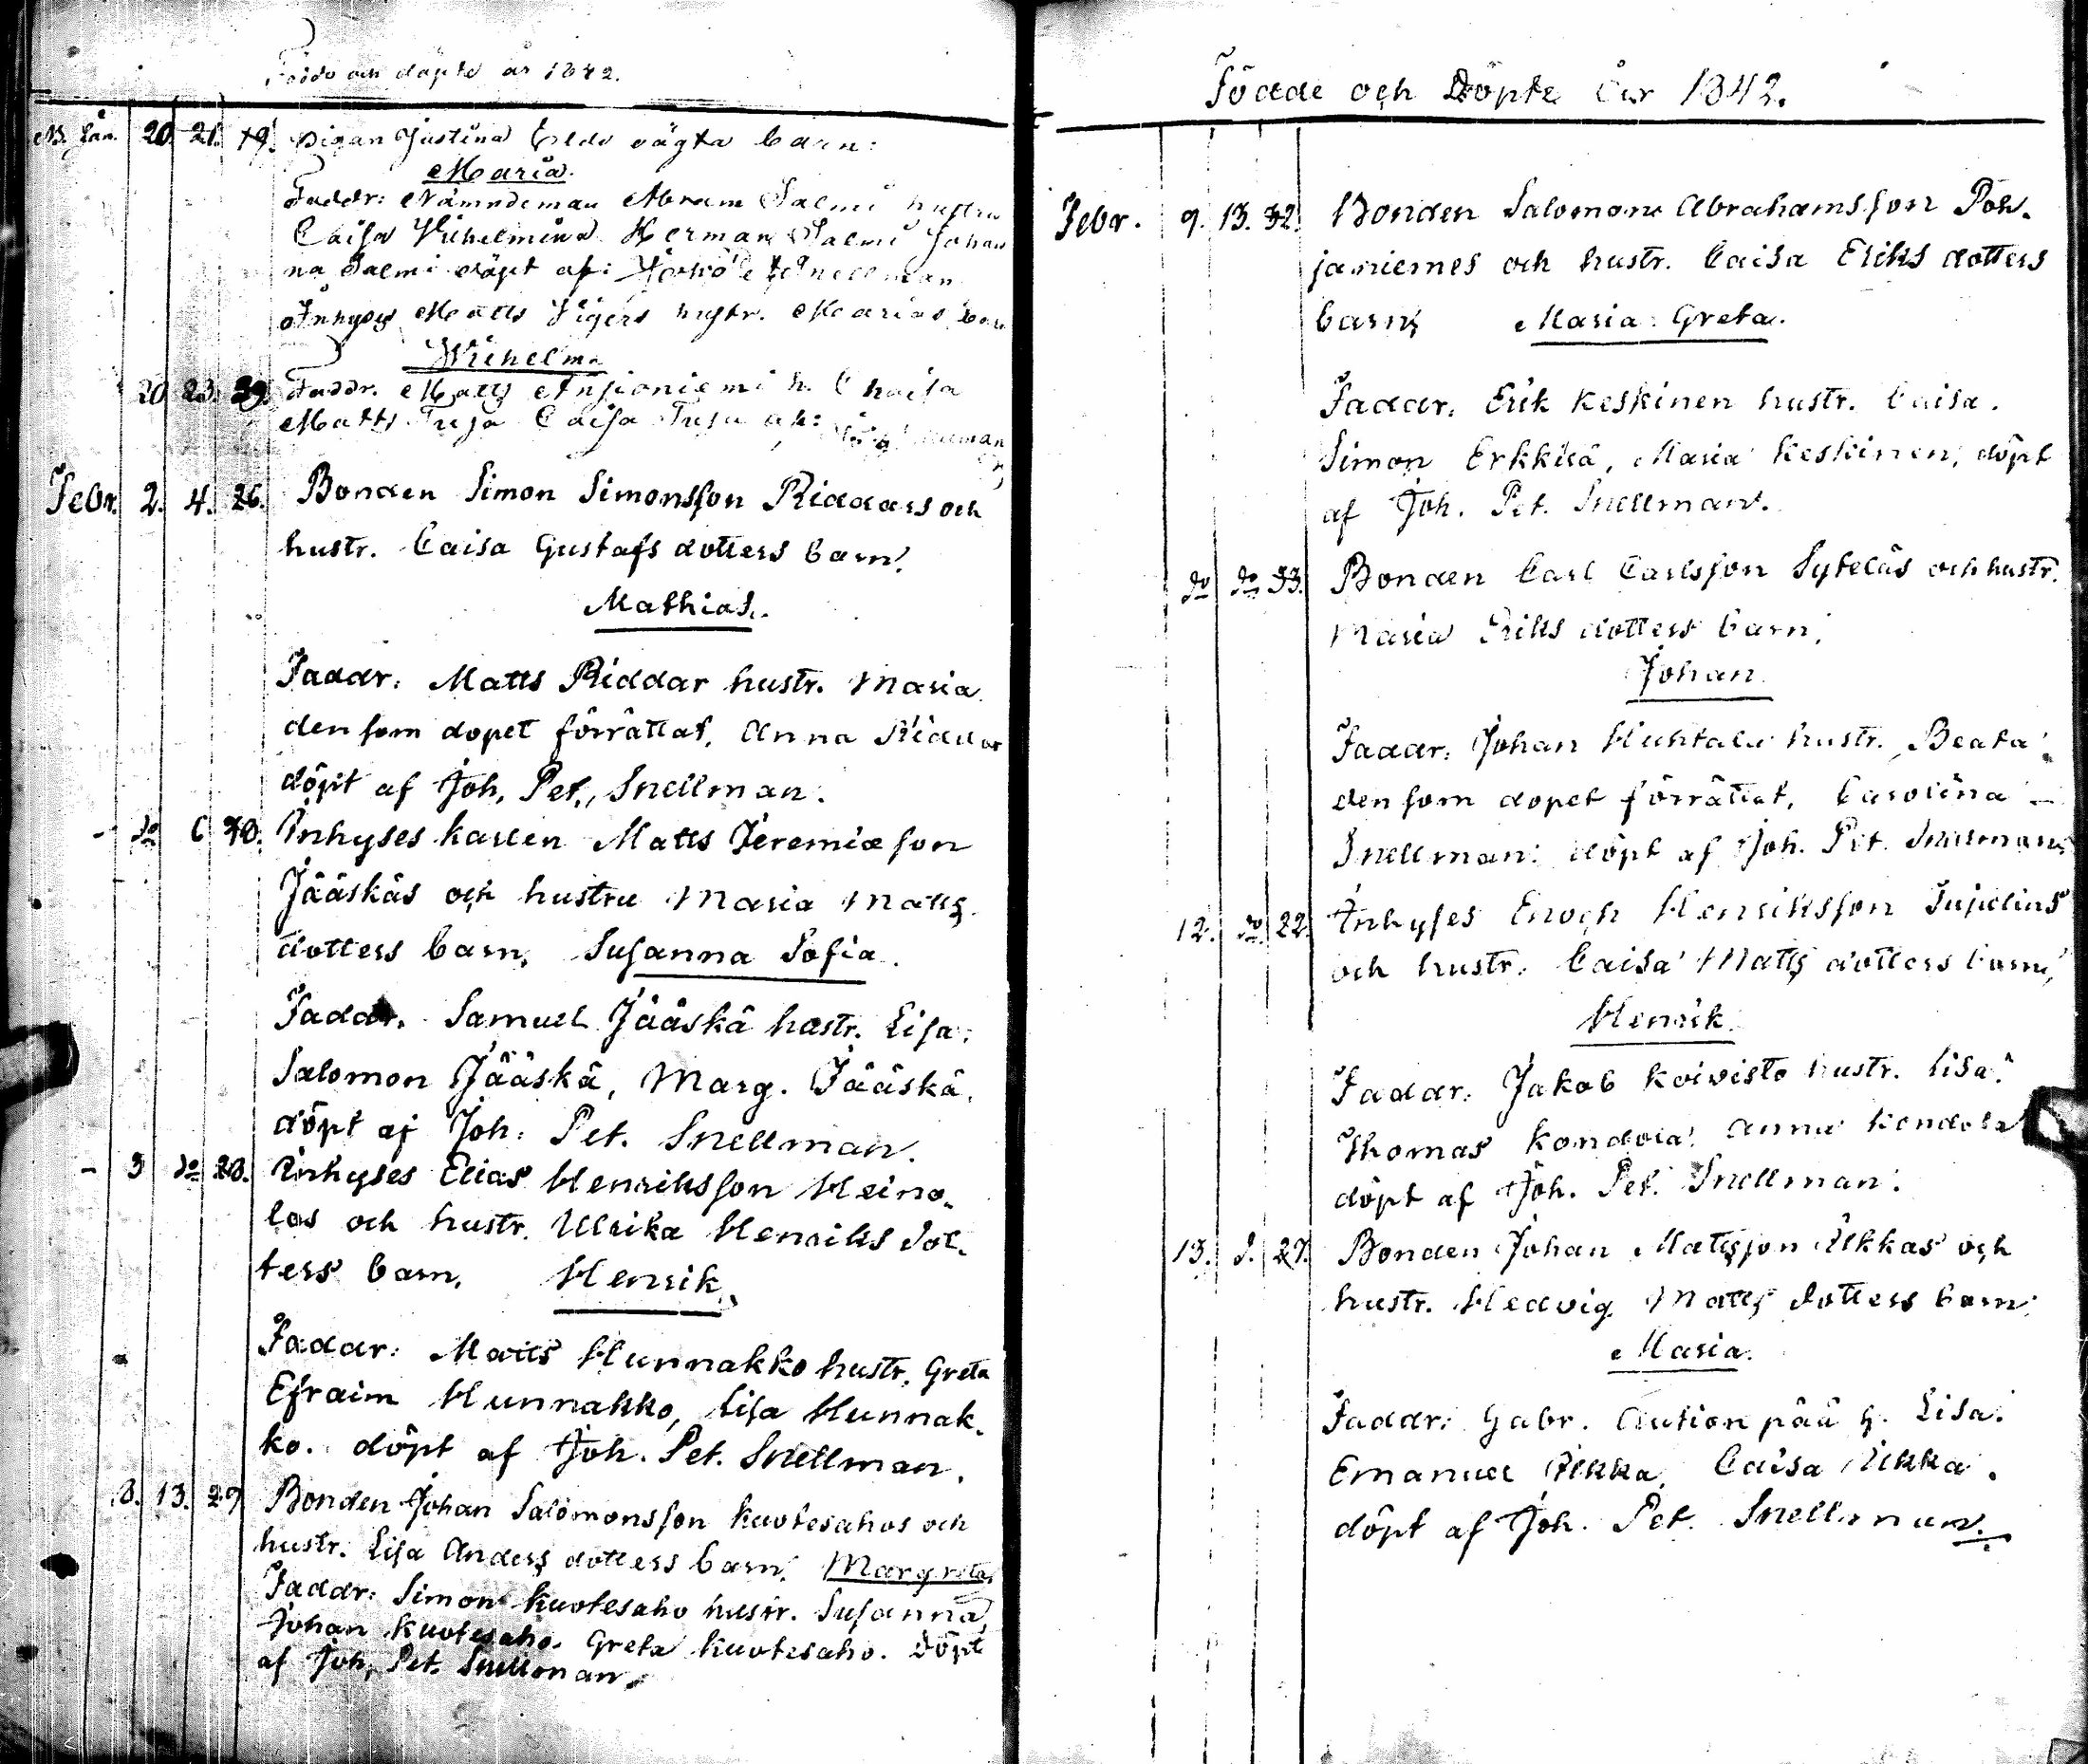 Födde och döpte år 1842.
N. Jan. 20. 21. 19. Pigan Justina oägta barn:
Maria.
Faddr: Nämndeman Abram Salmi hustru
Caisa Vilhelmina Herman Salmi Johan
na Salmi döpt af: Snellman
Inhyses Matts hustr. Marias barn
Wilhelm
20. 23. 39. Faddr. Matts Ansioniemi h. Chaisa
Matts Tuja Caisa Tuja
Febr. 2. 4. 26. Bonden Simon Simonsson Riddars och
hustr. Caisa Gustafs dotters barn:
Mathias.
Faddr: Matts Riddar hustr. Maria
den som dopet förrättat, Anna Riddar
döpt af Joh. Pet. Snellman.
- do 6 40. Inhyses karlen Matts Jeremiæ son
Jääskäs och hustru Maria Matts
dotters barn, Susanna Sofia.
Faddr. Samuel Jääskä hustr. Lisa:
Salomon Jääskä, Marg. Jääskä,
döpt af Joh. Pet. Snellman.
- 3 do 28. Inhyses Elias Henriksson Heino-
las och hustr. Ulrika Henriks dot-
ters barn, Henrik.
Faddr: Matts Hunnakko hustr. Greta
Efraim Hunnakko, Lisa Hunnak-
ko. döpt af Joh. Pet. Snellman.
8. 13. 29 Bonden Johan Salomonsson Kuotesahos och
hustr. Lisa Anders dotters barn. Margreta
Faddr: Simon Kuotesaho hustr. Susanna,
Johan Kuotesaho. Greta Kuotesaho. Döpt
af Joh. Pet. Snellman.
Födde och Döpte år 1842.
Febr. 9. 13. 32. Bonden Salomon Abrahamsson Poh-
janiemes och hustr. Caisa Eriks dotters
barn; Maria Greta.
Faddr: Erik Keskinen hustr. Caisa.
Simon Erkkilä, Maria Keskinen, döpt
af Joh. Pet. Snellman.
do do 33. Bonden Carl Carlsson Syteläs och hustr.
Maria Eriks dotters barn;
Johan
Faddr: Johan Huhtala hustr. Beata
den som dopet förrättat, Carolina -
Snellman: döpt af Joh. Pet. Snellman
12. do 22. Inhyses Enoch Henriksson
och hustr. Caisa Matts dotters barn,
Henrik.
Faddr: Jakob Koivisto hustr. Lisa.
Thomas Kondola Anna Kondola
döpt af Joh. Pet. Snellman.
13. d. 27. Bonden Johan Mattsson Ukkas och
hustr. Hedvig Matts dotters barn:
Maria.
Faddr: Gabr. Aution pää h. Lisa.
Emanuel Ukka, Caisa Ukka.
döpt af Joh. Pet. Snellman.